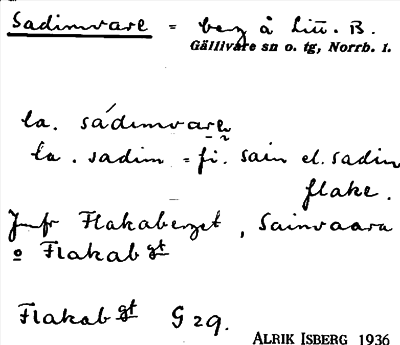 Sadimvare = berg å Litt. B.
Gällivare sn o. tg, Norrb. l.
la. sádimvarẹ
la. sadim = fi. sain el. sadin
flake.
Jmfr Flakaberget, Sainvaara
o Flakabgt
Flakabgt G 29.
ALRIK ISBERG 1936